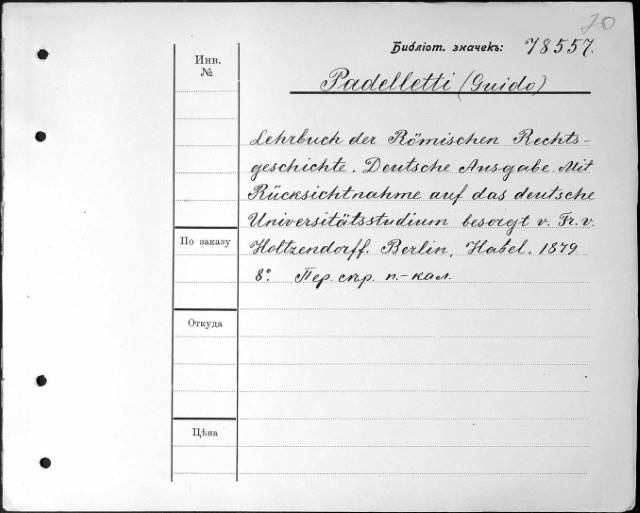 70
Библіот. значекъ: 78557.
Инв.
№
Padelletti (Guido)
Lehrbuch der Römischen Rechts-
geschichte. Deutsche Ausgabe. Mit
Rücksichtnahme auf das deutsche
Universitätsstudium besorgt v. Fr. v.
По заказу
Holtzendorff. Berlin, Habel. 1879
8°. Пер. сѣр. п.-кал.
Откуда
Цѣна